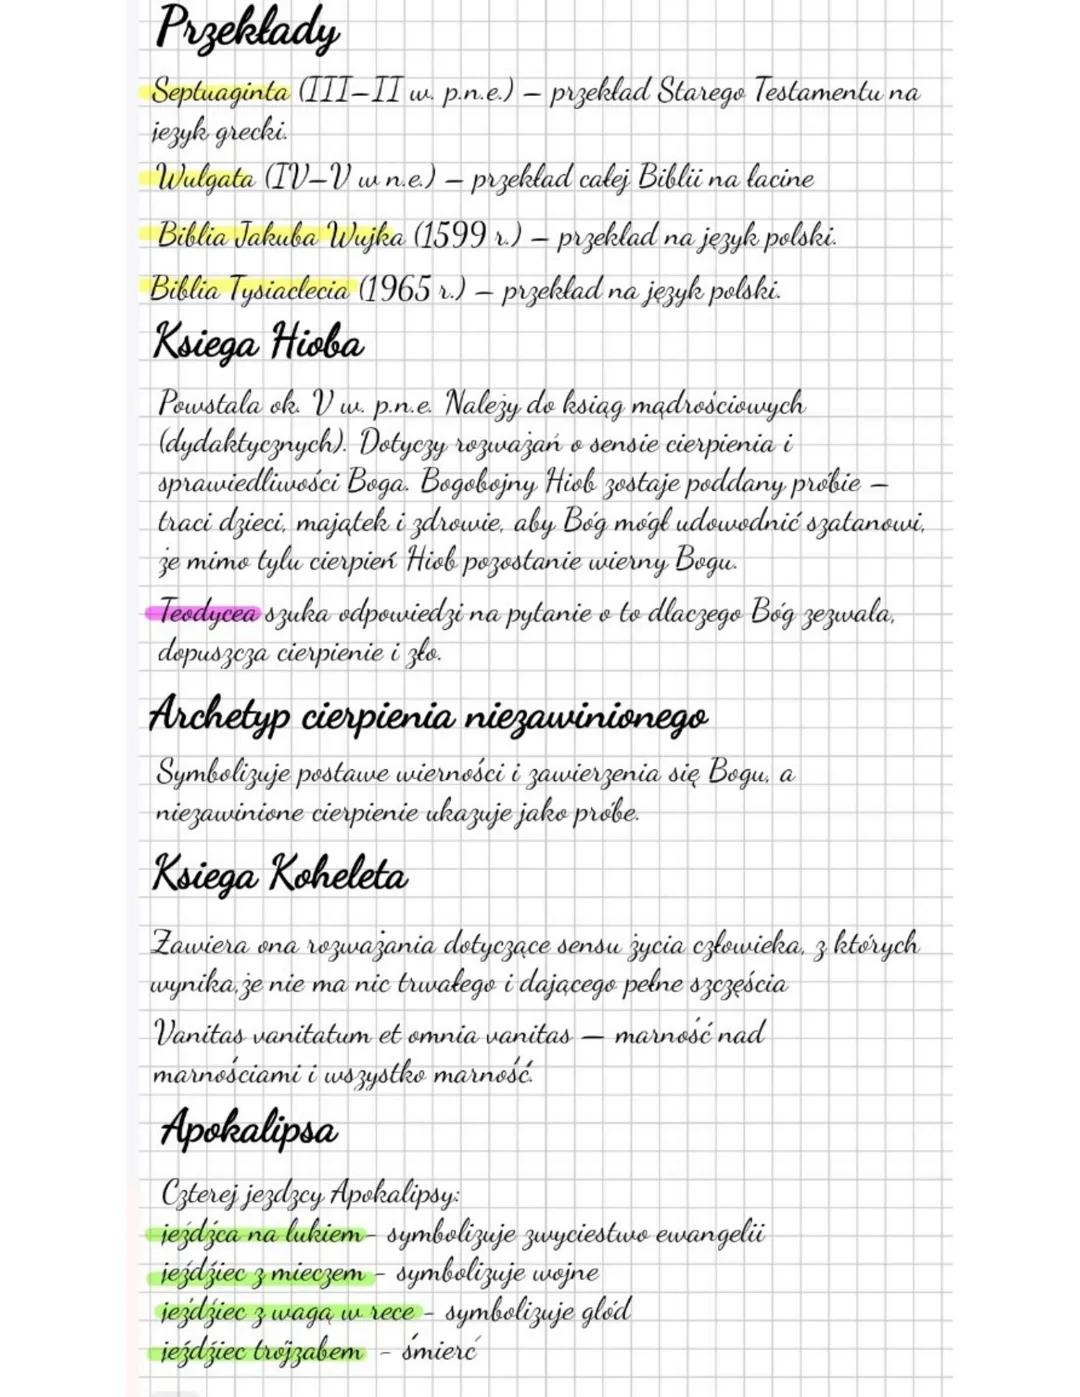 Przekłady
Septuaginta (III–II w. p.n.e.) – przekład Starego Testamentu na
jezyk grecki.
Wulgata (IV–V w n.e.) – przekład całej Biblii na łacine
Biblia Jakuba Wujka (1599 r.) – przekład na język polski.
Biblia Tysiaclecia (1965 r.) – przekład na język polski.
Ksiega Hioba
Powstala ok. V w. p.n.e. Należy do ksiąg mądrościowych
(dydaktycznych). Dotyczy rozważań o sensie cierpienia i
sprawiedliwości Boga. Bogobojny Hiob zostaje poddany próbie –
traci dzieci, majątek i zdrowie, aby Bóg mógł udowodnić szatanowi,
że mimo tylu cierpień Hiob pozostanie wierny Bogu.
Teodycea szuka odpowiedzi na pytanie o to dlaczego Bóg zezwala,
dopuszcza cierpienie i zło.
Archetyp cierpienia niezawinionego
Symbolizuje postawe wierności i zawierzenia się Bogu, a
niezawinione cierpienie ukazuje jako próbe.
Ksiega Koheleta
Zawiera ona rozważania dotyczące sensu życia człowieka, z których
wynika,że nie ma nic trwałego i dającego pełne szczęścia
Vanitas vanitatum et omnia vanitas – marność nad
marnościami i wszystko marność.
Apokalipsa
Czterej jezdzcy Apokalipsy:
jeźdźca na lukiem- symbolizuje zwyciestwo ewangelii
jeździec z mieczem - symbolizuje wojne
jeździec z wagą w rece - symbolizuje glód
jeździec trójzabem - śmierć